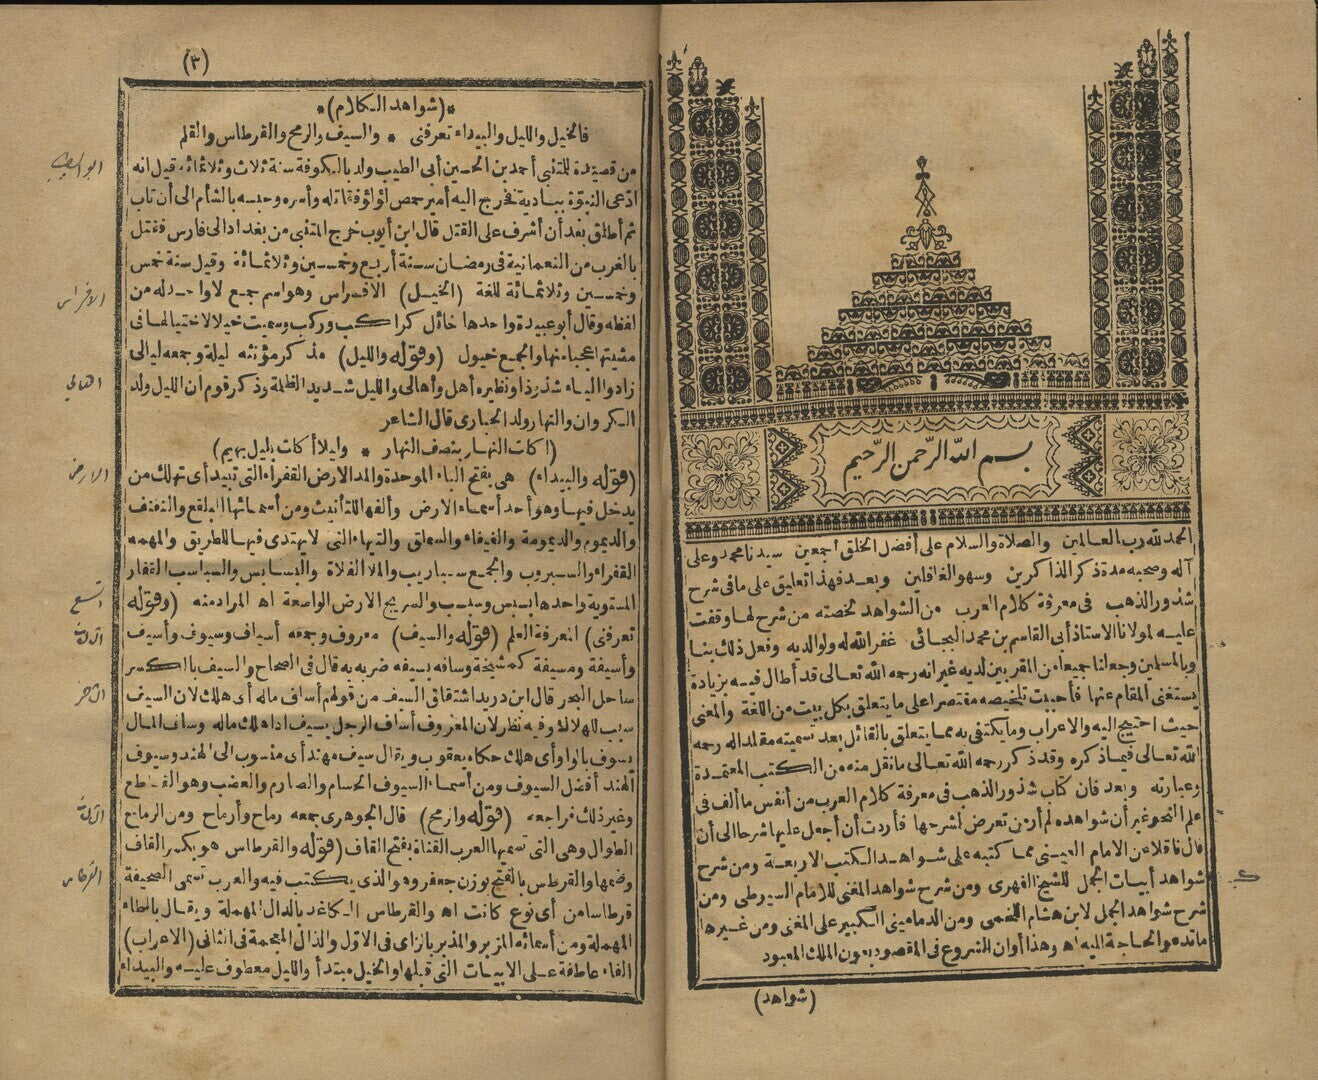 بسم الله الرّحمن الرّحيم
الحمد لله رب العالمين والصلاة والسلام على أفضل الخلق أجمعين سيدنا محمد وعلى
آله وصحبه مدة ذكر الذاكرين وسهو الغافلين وبعد فهذا تعليق على ما في شرح
شذور الذهب فى معرفة كلام العرب من الشواهد لخصته من شرح لها وقفت
عليه لمولانا الاستاذ أبي القاسم بن محمد البجائى غفر الله له ولوالديه وفعل ذلك بنا
وبالمسلمين وجعلنا جميعا من المقربين لديه غير انه رحمه الله تعالى قد أطال فيه بزيادة
يستغنى المقام عنها فأحببت تلخيصه مقتصرا على ما يتعلق بكل بيت من اللغة والمعنى
حيث احتيج اليه والاعراب وما يكتفى به مما يتعلق بالقائل بعد تسميته مقلدا له رحمه
الله تعالى فيما ذكره وقد ذكر رحمه الله تعالى ما نقل منه من الكتب المعتمدة
وعبارته وبعد فان كتاب شذور الذهب فى معرفة كلام العرب من أنفس ما ألف فى
علم النحو غير أن شواهده لم أر من تعرض لشرحها فأردت أن أجعل عليها شرحا الى أن
قال ناقلا عن الامام العينى مما كتبه على شواهد الكتب الاربعة ومن شرح
شواهد أبيات الجمل للشيخ الفهرى ومن شرح شواهد المغنى للامام السيوطى ومن
شرح شواهد الجمل لابن هشام اللخمى ومن الدمامينى الكبير على المغنى ومن غيرها
ما تدعو الحاجة اليه اه وهذا أوان الشروع فى المقصود بعون الملك المعبود
(شواهد)
(٣)
*(شواهد الكلام)*
فالخيل والليل والبيداء تعرفنى * والسيف والرمح والقرطاس والقلم
من قصيدة للمتنبى أحمد بن الحسين أبى الطيب ولد بالكوفة سنة ثلاث وثلاثمائة، قيل انه
ادّعى النبوّة ببادية فخرج اليه أمير حمص لؤلؤ فقاتله وأسره وحبسه بالشأم الى أن تاب
ثم أطلق بعد أن أشرف على القتل قال ابن أيوب خرج المتنبى من بغداد الى فارس فقتل
بالغرب من النعمانية فى رمضان سنة أربع وخمسين وثلاثمائة وقيل سنة خمس
وخمسين وثلاثمائة للغة (الخيل) الافراس وهو اسم جمع لا واحد له من
لفظه وقال أبو عبيدة واحدها خائل كراكب وركب وسميت خيلا لاختيالها فى
مشيتها عجبا منها والجمع خيول (وقوله والليل) مذكر مؤنثه ليلة وجمعه ليالى
زادوا الياء شذوذا ونظيره أهل وأهالى والليل شديد الظلمة وذكر قوم ان الليل ولد
الكروان والنهار ولد الحبارى قال الشاعر
(أكلت النهار بنصف النهار * وليلا أكلت بليل بهيم)
(قوله والبيداء) هى بفتح الباء الموحدة والمد الارض القفراء التى تبيد أى تهلك من
يدخل فيها وهو أحد أسماء الارض وألفها للتأنيث ومن أسمائها البلقع والنفنف
والديموم والديمومة والفيفاء والسملق والتيهاء التى لا يهتدى فيها للطريق والمهمه
القفراء والسبروب والجمع سباريب والملا الفلاة والبسابس والسباسب القفار
المستوية واحدها بسبس وسبسب والسربخ الارض الواسعة اه المراد منه (وقوله
تعرفنى) المعرفة العلم (قوله والسيف) معروف وجمعه أسياف وسيوف وأسيف
وأسيفة ومسيفة كمشيخة وسافه بسيفه ضربه به قال فى الصحاح والسيف بالكسر
ساحل البحر قال ابن دريد اشتقاق السيف من قولهم أساف ماله أى هلك لان السيف
سبب للهلاك وفيه نظر لان المعروف أساف الرجل يسيف اذا هلك ماله وساف المال
يسوف بالواو أى هلك حكاه يعقوب ويقال سيف مهند أى منسوب الى الهند وسيوف
الهند أفضل السيوف ومن أسماء السيوف الحسام والصارم والعضب وهو القاطع
وغير ذلك فراجعه (قوله والرمح) قال الجوهرى جمعه رماح وأرماح ومن الرماح
الطوال وهى التى تسميها العرب القناة بفتح القاف (قوله والقرطاس هو بكسر القاف
وضمها والقرطاس بالفتح بوزن جعفر وهو الذى يكتب فيه والعرب تسمى الصحيفة
قرطاسا من أى نوع كانت اه والقرطاس الكاغد بالدال المهملة ويقال بالظاء
المهملة ومن أسمائه المزبر والمذبر بالزاى فى الاوّل والذال المعجمة فى الثانى (الاعراب)
الفاء عاطفة على الابيات التى قبلها والخيل مبتدأ والليل معطوف عليه والبيداء
ابو الطيب
الافراس
اهالي
الارض
القرطاس